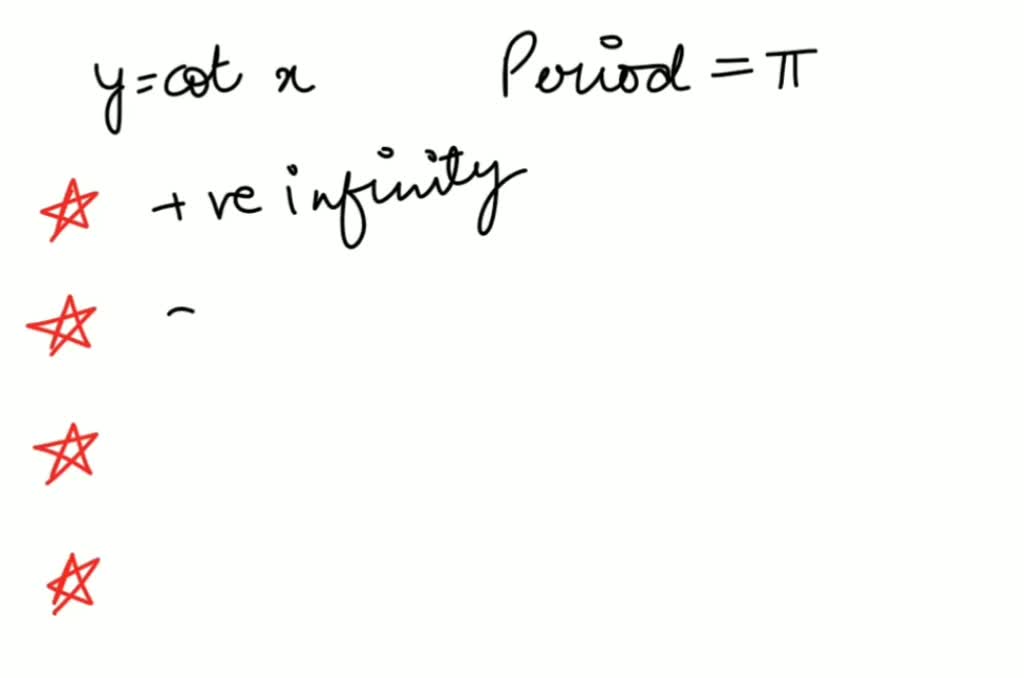 y = cot x Period = π
+ve infinity
-